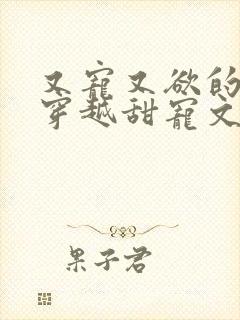 又宠又欲的
穿越甜宠文
果子君